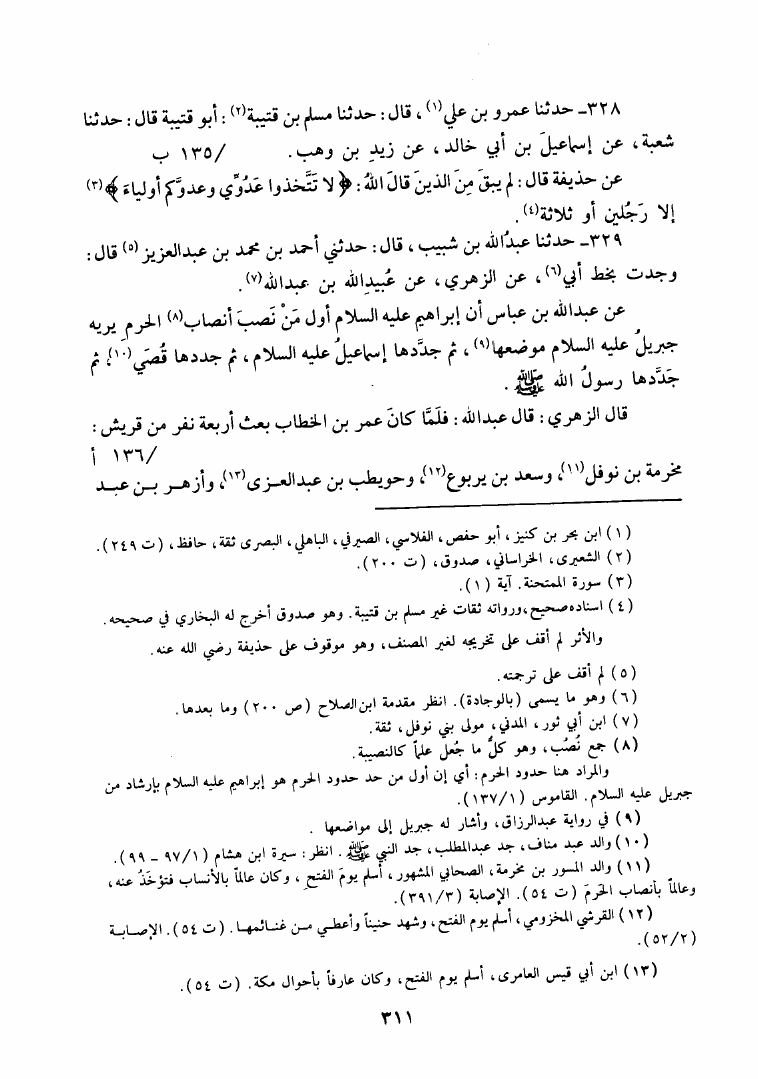 ٣٢٨ـ حدثنا عمرو بن علي(١)، قال: حدثنا مسلم بن قتيبة(٢): أبو قتيبة قال: حدثنا
شعبة، عن إسماعيلَ بن أبي خالد، عن زيدِ بن وهب. /١٣٥ ب
عن حذيفة قال: لم يبقَ مِنَ الذينَ قالَ اللهُ: ﴿لا تَتَّخذوا عَدُوِّي وعدوَّكم أولياءَ﴾(٣)
إلا رَجُلين أو ثلاثة(٤).
٣٢٩ـ حدثنا عبدُالله بن شبيب، قال: حدثني أحمد بن محمد بن عبدالعزيز(٥) قال:
وجدت بخط أبي(٦)، عن الزهري، عن عُبيدِالله بن عبدالله(٧).
عن عبدالله بن عباس أن إبراهيم عليه السلام أول مَنْ نَصبَ أنصاب(٨) الحرمِ يريه
جبريلُ عليه السلام موضعها(٩)، ثم جدَّدها إسماعيلُ عليه السلام، ثم جددها قُصَي(١٠)، ثم
جَدَّدها رسولُ الله ﷺ.
قال الزهري: قال عبدالله: فلَمَّا كانَ عمر بن الخطاب بعث أربعة نفر من قريش:
/١٣٦ أ
مخرمة بن نوفل(١١)، وسعد بن يربوع(١٢)، وحويطب بن عبدالعزى(١٣)، وأزهر بن عبد
(١) ابن بحر بن كنيز، أبو حفص، الفلاسي، الصيرفي، الباهلي، البصرى ثقة، حافظ، (ت ٢٤٩).
(٢) الشعيرى، الخراساني، صدوق، (ت ٢٠٠).
(٣) سورة الممتحنة. آية (١).
(٤) اسناده صحيح، ورواته ثقات غير مسلم بن قتيبة. وهو صدوق أخرج له البخاري في صحيحه.
والأثر لم أقف على تخريجه لغير المصنف، وهو موقوف على حذيفة رضي الله عنه.
(٥) لم أقف على ترجمته.
(٦) وهو ما يسمى (بالوجادة). انظر مقدمة ابن الصلاح (ص ٢٠٠) وما بعدها.
(٧) ابن أبي ثور، المدني، مولى بني نوفل، ثقة.
(٨) جمع نُصُب، وهو كلُّ ما جُعل علماً كالنصيبة.
والمراد هنا حدود الحرم: أي إن أول من حد حدود الحرم هو إبراهيم عليه السلام بإرشاد من
جبريل عليه السلام. القاموس (١٣٧/١).
(٩) في رواية عبدالرزاق، وأشار له جبريل إلى مواضعها.
(١٠) والد عبد مناف، جد عبدالمطلب، جد النبي ﷺ. انظر: سيرة ابن هشام (٩٧/١ ـ ٩٩).
(١١) والد المسور بن مخرمة، الصحابي المشهور، أسلم يومَ الفتح، وكان عالماً بالأنساب فتؤخَذُ عنه،
وعالماً بأنصاب الحَرمَ (ت ٥٤). الإصابة (٣٩١/٣).
(١٢) القرشي المخزومي، أسلم يوم الفتح، وشهد حنيناً وأعطي من غنائمها. (ت ٥٤). الإصابة
(٥٢/٢).
(١٣) ابن أبي قيس العامرى، أسلم يوم الفتح، وكان عارفاً بأحوال مكة. (ت ٥٤).
٣١١